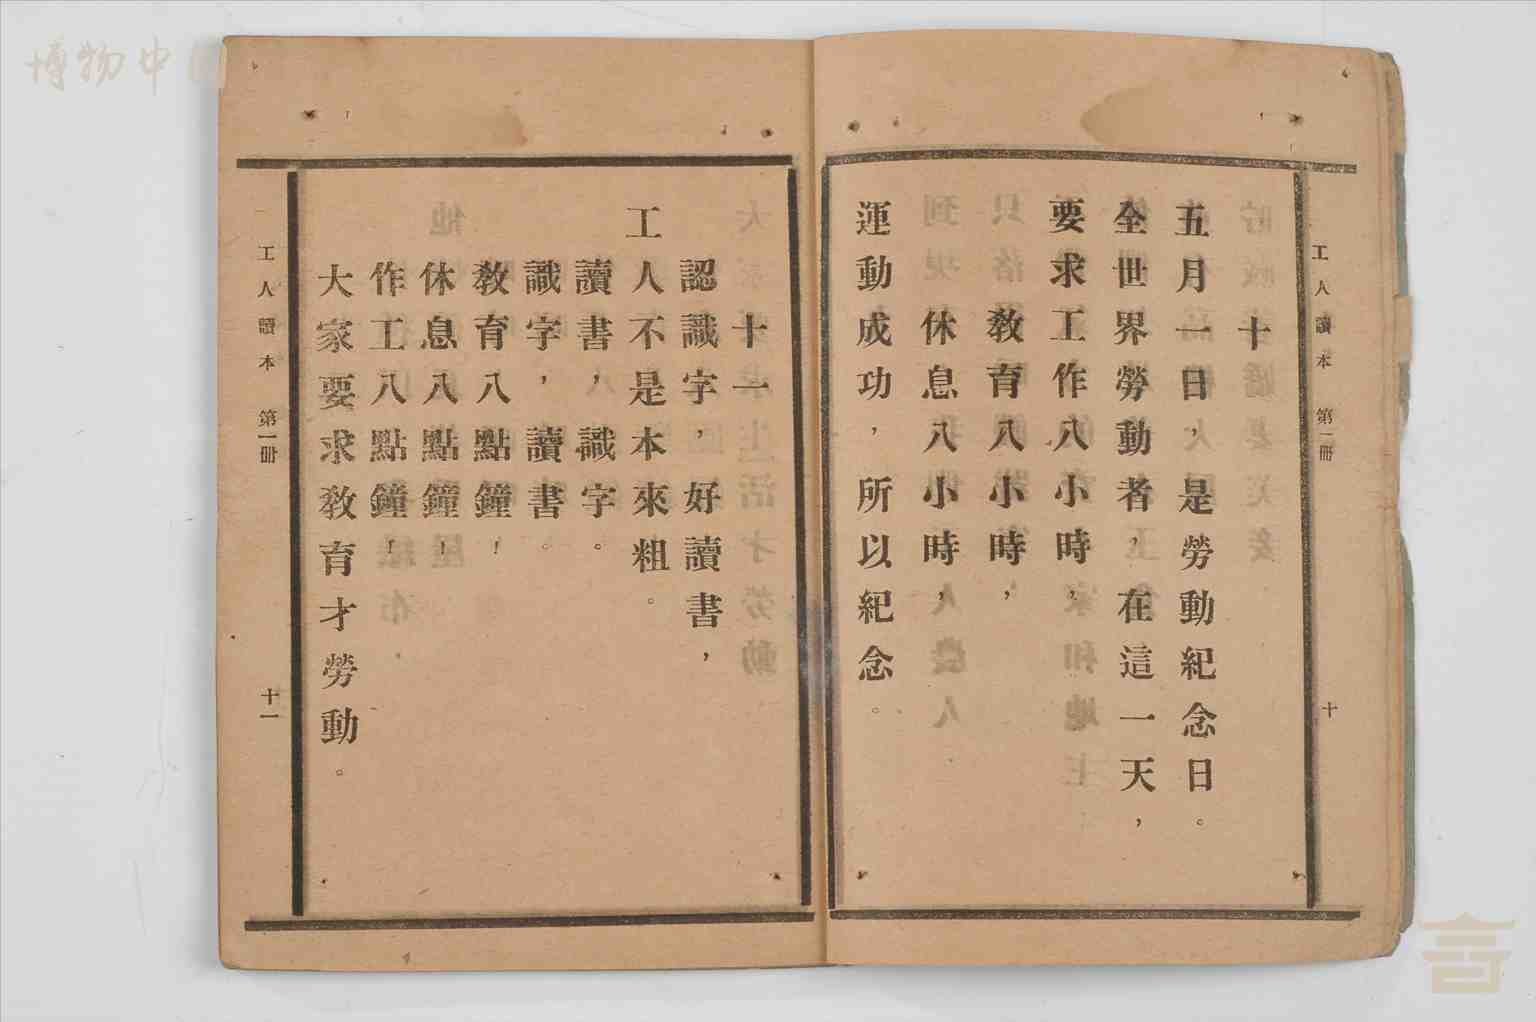 博物中國
工人讀本 第一冊 十
十
五月一日，是勞動紀念日。
全世界勞動者，在這一天，
要求工作八小時，
教育八小時，
休息八小時，
運動成功，所以紀念。
十一
認識字，好讀書，
工人不是本來粗。
讀書，識字。
識字，讀書。
教育八點鐘！
休息八點鐘！
作工八點鐘！
大家要求教育才勞動。
工人讀本 第一冊 十一